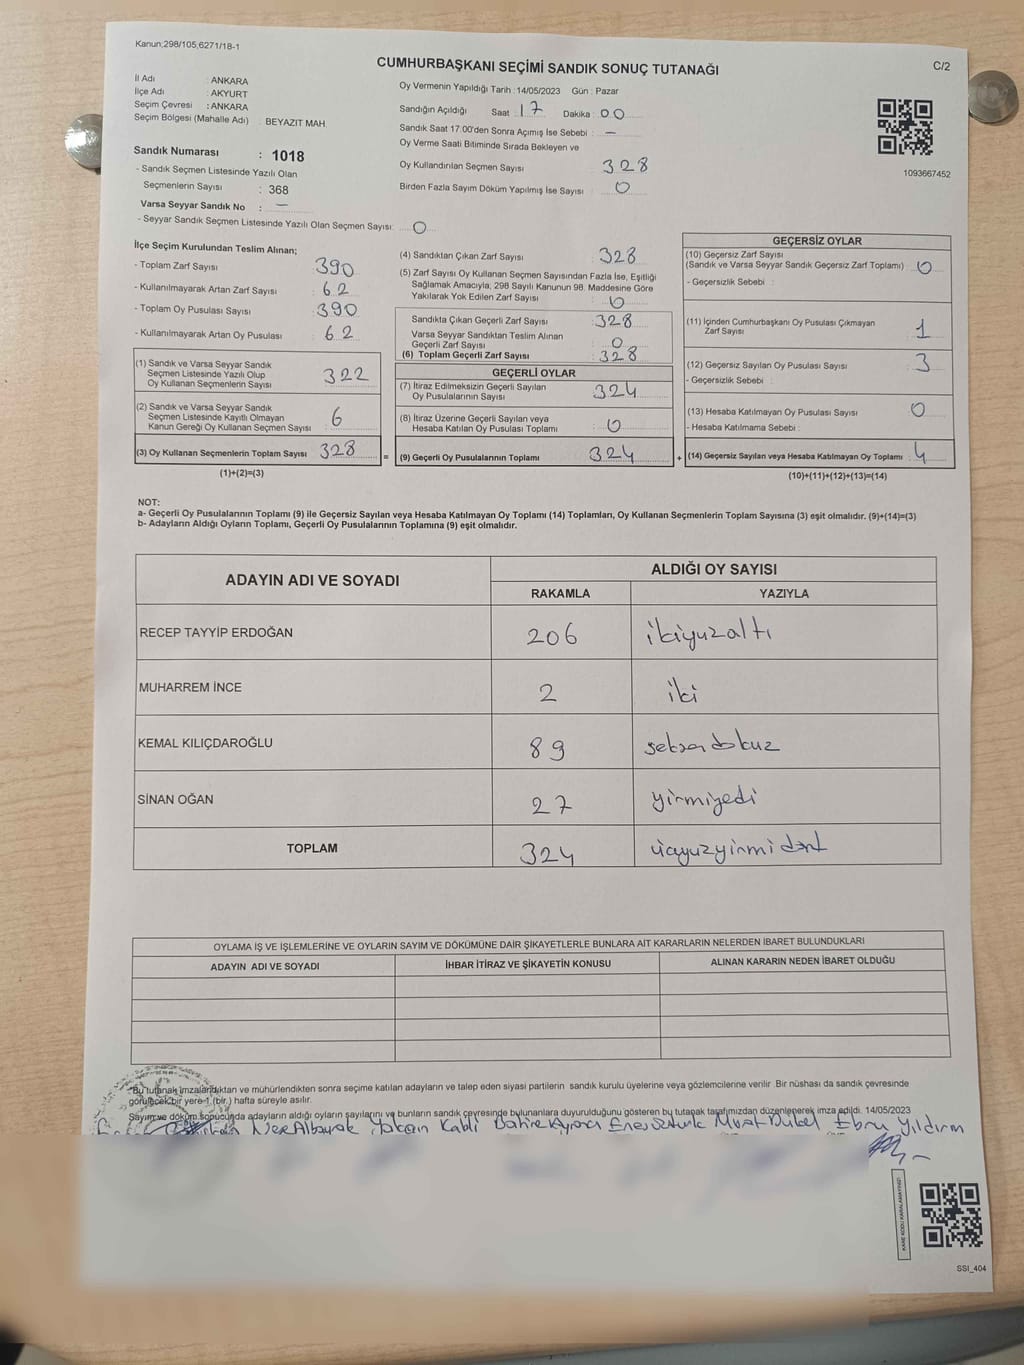 Kanun;298/105,6271/18-1
C/2
CUMHURBAŞKANI SEÇİMİ SANDIK SONUÇ TUTANAĞI
İl Adı : ANKARA
İlçe Adı : AKYURT
Seçim Çevresi : ANKARA
Seçim Bölgesi (Mahalle Adı) : BEYAZIT MAH.
Sandık Numarası : 1018
- Sandık Seçmen Listesinde Yazılı Olan
Seçmenlerin Sayısı : 368
Varsa Seyyar Sandık No : —
- Seyyar Sandık Seçmen Listesinde Yazılı Olan Seçmen Sayısı: 0
Oy Vermenin Yapıldığı Tarih : 14/05/2023 Gün : Pazar
Sandığın Açıldığı Saat : 17 Dakika : 00
Sandık Saat 17.00'den Sonra Açımış İse Sebebi : —
Oy Verme Saati Bitiminde Sırada Bekleyen ve
Oy Kullandırılan Seçmen Sayısı 328
Birden Fazla Sayım Döküm Yapılmış İse Sayısı : 0
1093667452
İlçe Seçim Kurulundan Teslim Alınan;
- Toplam Zarf Sayısı : 390
- Kullanılmayarak Artan Zarf Sayısı : 62
- Toplam Oy Pusulası Sayısı : 390
- Kullanılmayarak Artan Oy Pusulası : 62
(1) Sandık ve Varsa Seyyar Sandık
Seçmen Listesinde Yazılı Olup
Oy Kullanan Seçmenlerin Sayısı : 322
(2) Sandık ve Varsa Seyyar Sandık
Seçmen Listesinde Kayıtlı Olmayan
Kanun Gereği Oy Kullanan Seçmen Sayısı : 6
(3) Oy Kullanan Seçmenlerin Toplam Sayısı : 328 =
(1)+(2)=(3)
(4) Sandıktan Çıkan Zarf Sayısı : 328
(5) Zarf Sayısı Oy Kullanan Seçmen Sayısından Fazla İse, Eşitliği
Sağlamak Amacıyla, 298 Sayılı Kanunun 98. Maddesine Göre
Yakılarak Yok Edilen Zarf Sayısı : 0
Sandıkta Çıkan Geçerli Zarf Sayısı : 328
Varsa Seyyar Sandıktan Teslim Alınan
Geçerli Zarf Sayısı : 0
(6) Toplam Geçerli Zarf Sayısı : 328
GEÇERLİ OYLAR
(7) İtiraz Edilmeksizin Geçerli Sayılan
Oy Pusulalarının Sayısı : 324
(8) İtiraz Üzerine Geçerli Sayılan veya
Hesaba Katılan Oy Pusulası Toplamı : 0
(9) Geçerli Oy Pusulalarının Toplamı : 324 +
GEÇERSİZ OYLAR
(10) Geçersiz Zarf Sayısı
(Sandık ve Varsa Seyyar Sandık Geçersiz Zarf Toplamı) : 0
- Geçersizlik Sebebi :
(11) İçinden Cumhurbaşkanı Oy Pusulası Çıkmayan
Zarf Sayısı : 1
(12) Geçersiz Sayılan Oy Pusulası Sayısı : 3
- Geçersizlik Sebebi :
(13) Hesaba Katılmayan Oy Pusulası Sayısı : 0
- Hesaba Katılmama Sebebi :
(14) Geçersiz Sayılan veya Hesaba Katılmayan Oy Toplamı : 4
(10)+(11)+(12)+(13)=(14)
NOT:
a- Geçerli Oy Pusulalarının Toplamı (9) ile Geçersiz Sayılan veya Hesaba Katılmayan Oy Toplamı (14) Toplamları, Oy Kullanan Seçmenlerin Toplam Sayısına (3) eşit olmalıdır. (9)+(14)=(3)
b- Adayların Aldığı Oyların Toplamı, Geçerli Oy Pusulalarının Toplamına (9) eşit olmalıdır.
ADAYIN ADI VE SOYADI ALDIĞI OY SAYISI
RAKAMLA YAZIYLA
RECEP TAYYİP ERDOĞAN 206 ikiyuzaltı
MUHARREM İNCE 2 iki
KEMAL KILIÇDAROĞLU 89 seksendokuz
SİNAN OĞAN 27 yirmiyedi
TOPLAM 324 üçyuzyirmi dört
OYLAMA İŞ VE İŞLEMLERİNE VE OYLARIN SAYIM VE DÖKÜMÜNE DAİR ŞİKAYETLERLE BUNLARA AİT KARARLARIN NELERDEN İBARET BULUNDUKLARI
ADAYIN ADI VE SOYADI İHBAR İTİRAZ VE ŞİKAYETİN KONUSU ALINAN KARARIN NEDEN İBARET OLDUĞU
*Bu tutanak imzalandıktan ve mühürlendikten sonra seçime katılan adayların ve talep eden siyasi partilerin sandık kurulu üyelerine veya gözlemcilerine verilir Bir nüshası da sandık çevresinde
görülecek bir yere 1 (bir ) hafta süreyle asılır.
Sayım ve döküm sonucunda adayların aldığı oyların sayılarını ve bunların sandık çevresinde bulunanlara duyurulduğunu gösteren bu tutanak tarafımızdan düzenlenerek imza edildi. 14/05/2023
Albayrak Yalçın Kabli Murat Dubel Ebru Yıldırım
KARE KODU KARALAMAYINIZ!
SSI_404